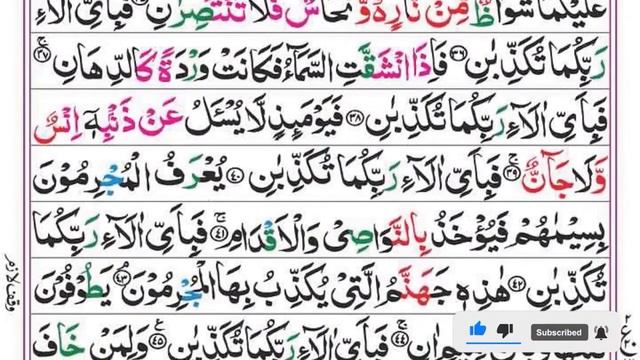 عَلَيْكُمَا شُوَاظٌ مِّنْ نَّارٍ ۙ وَّ نُحَاسٌ فَلَا تَنْتَصِرٰنِ ۚ ﴿٣٥﴾ فَبِاَىِّ اٰلَآءِ
رَبِّكُمَا تُكَذِّبٰنِ ﴿٣٦﴾ فَاِذَا انْشَقَّتِ السَّمَآءُ فَكَانَتْ وَرْدَةً كَالدِّهَانِ ۚ ﴿٣٧﴾
فَبِاَىِّ اٰلَآءِ رَبِّكُمَا تُكَذِّبٰنِ ﴿٣٨﴾ فَيَوْمَئِذٍ لَّا يُسْئَلُ عَنْ ذَنْۢبِهٖۤ اِنْسٌ
وَّلَا جَآنٌّ ۚ ﴿٣٩﴾ فَبِاَىِّ اٰلَآءِ رَبِّكُمَا تُكَذِّبٰنِ ﴿٤٠﴾ يُعْرَفُ الْمُجْرِمُوْنَ
بِسِيْمٰهُمْ فَيُؤْخَذُ بِالنَّوَاصِىْ وَالْاَقْدَامِ ۚ ﴿٤١﴾ فَبِاَىِّ اٰلَآءِ رَبِّكُمَا
تُكَذِّبٰنِ ﴿٤٢﴾ هٰذِهٖ جَهَنَّمُ الَّتِىْ يُكَذِّبُ بِهَا الْمُجْرِمُوْنَ ۘ ﴿٤٣﴾ يَطُوْفُوْنَ
وقف لازم
اٰنٍ ۚ ﴿٤٤﴾ فَبِاَىِّ اٰلَآءِ رَبِّكُمَا تُكَذِّبٰنِ ﴿٤٥﴾ وَلِمَنْ خَافَ
Subscribed